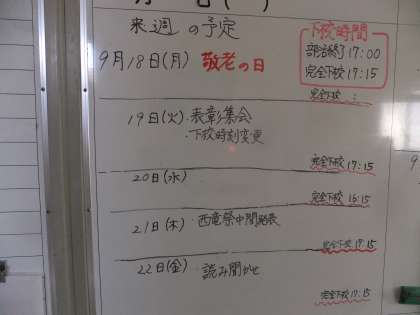 来週の予定
下校時間
部活終了 17:00
完全下校 17:15
9月18日(月) 敬老の日
完全下校 :
19日(火)・表彰集会
・下校時刻変更
完全下校 17:15
20日(水)
完全下校 16:15
21日(木)・西竜祭中間発表
完全下校 17:15
22日(金)・読み聞かせ
完全下校 17:15